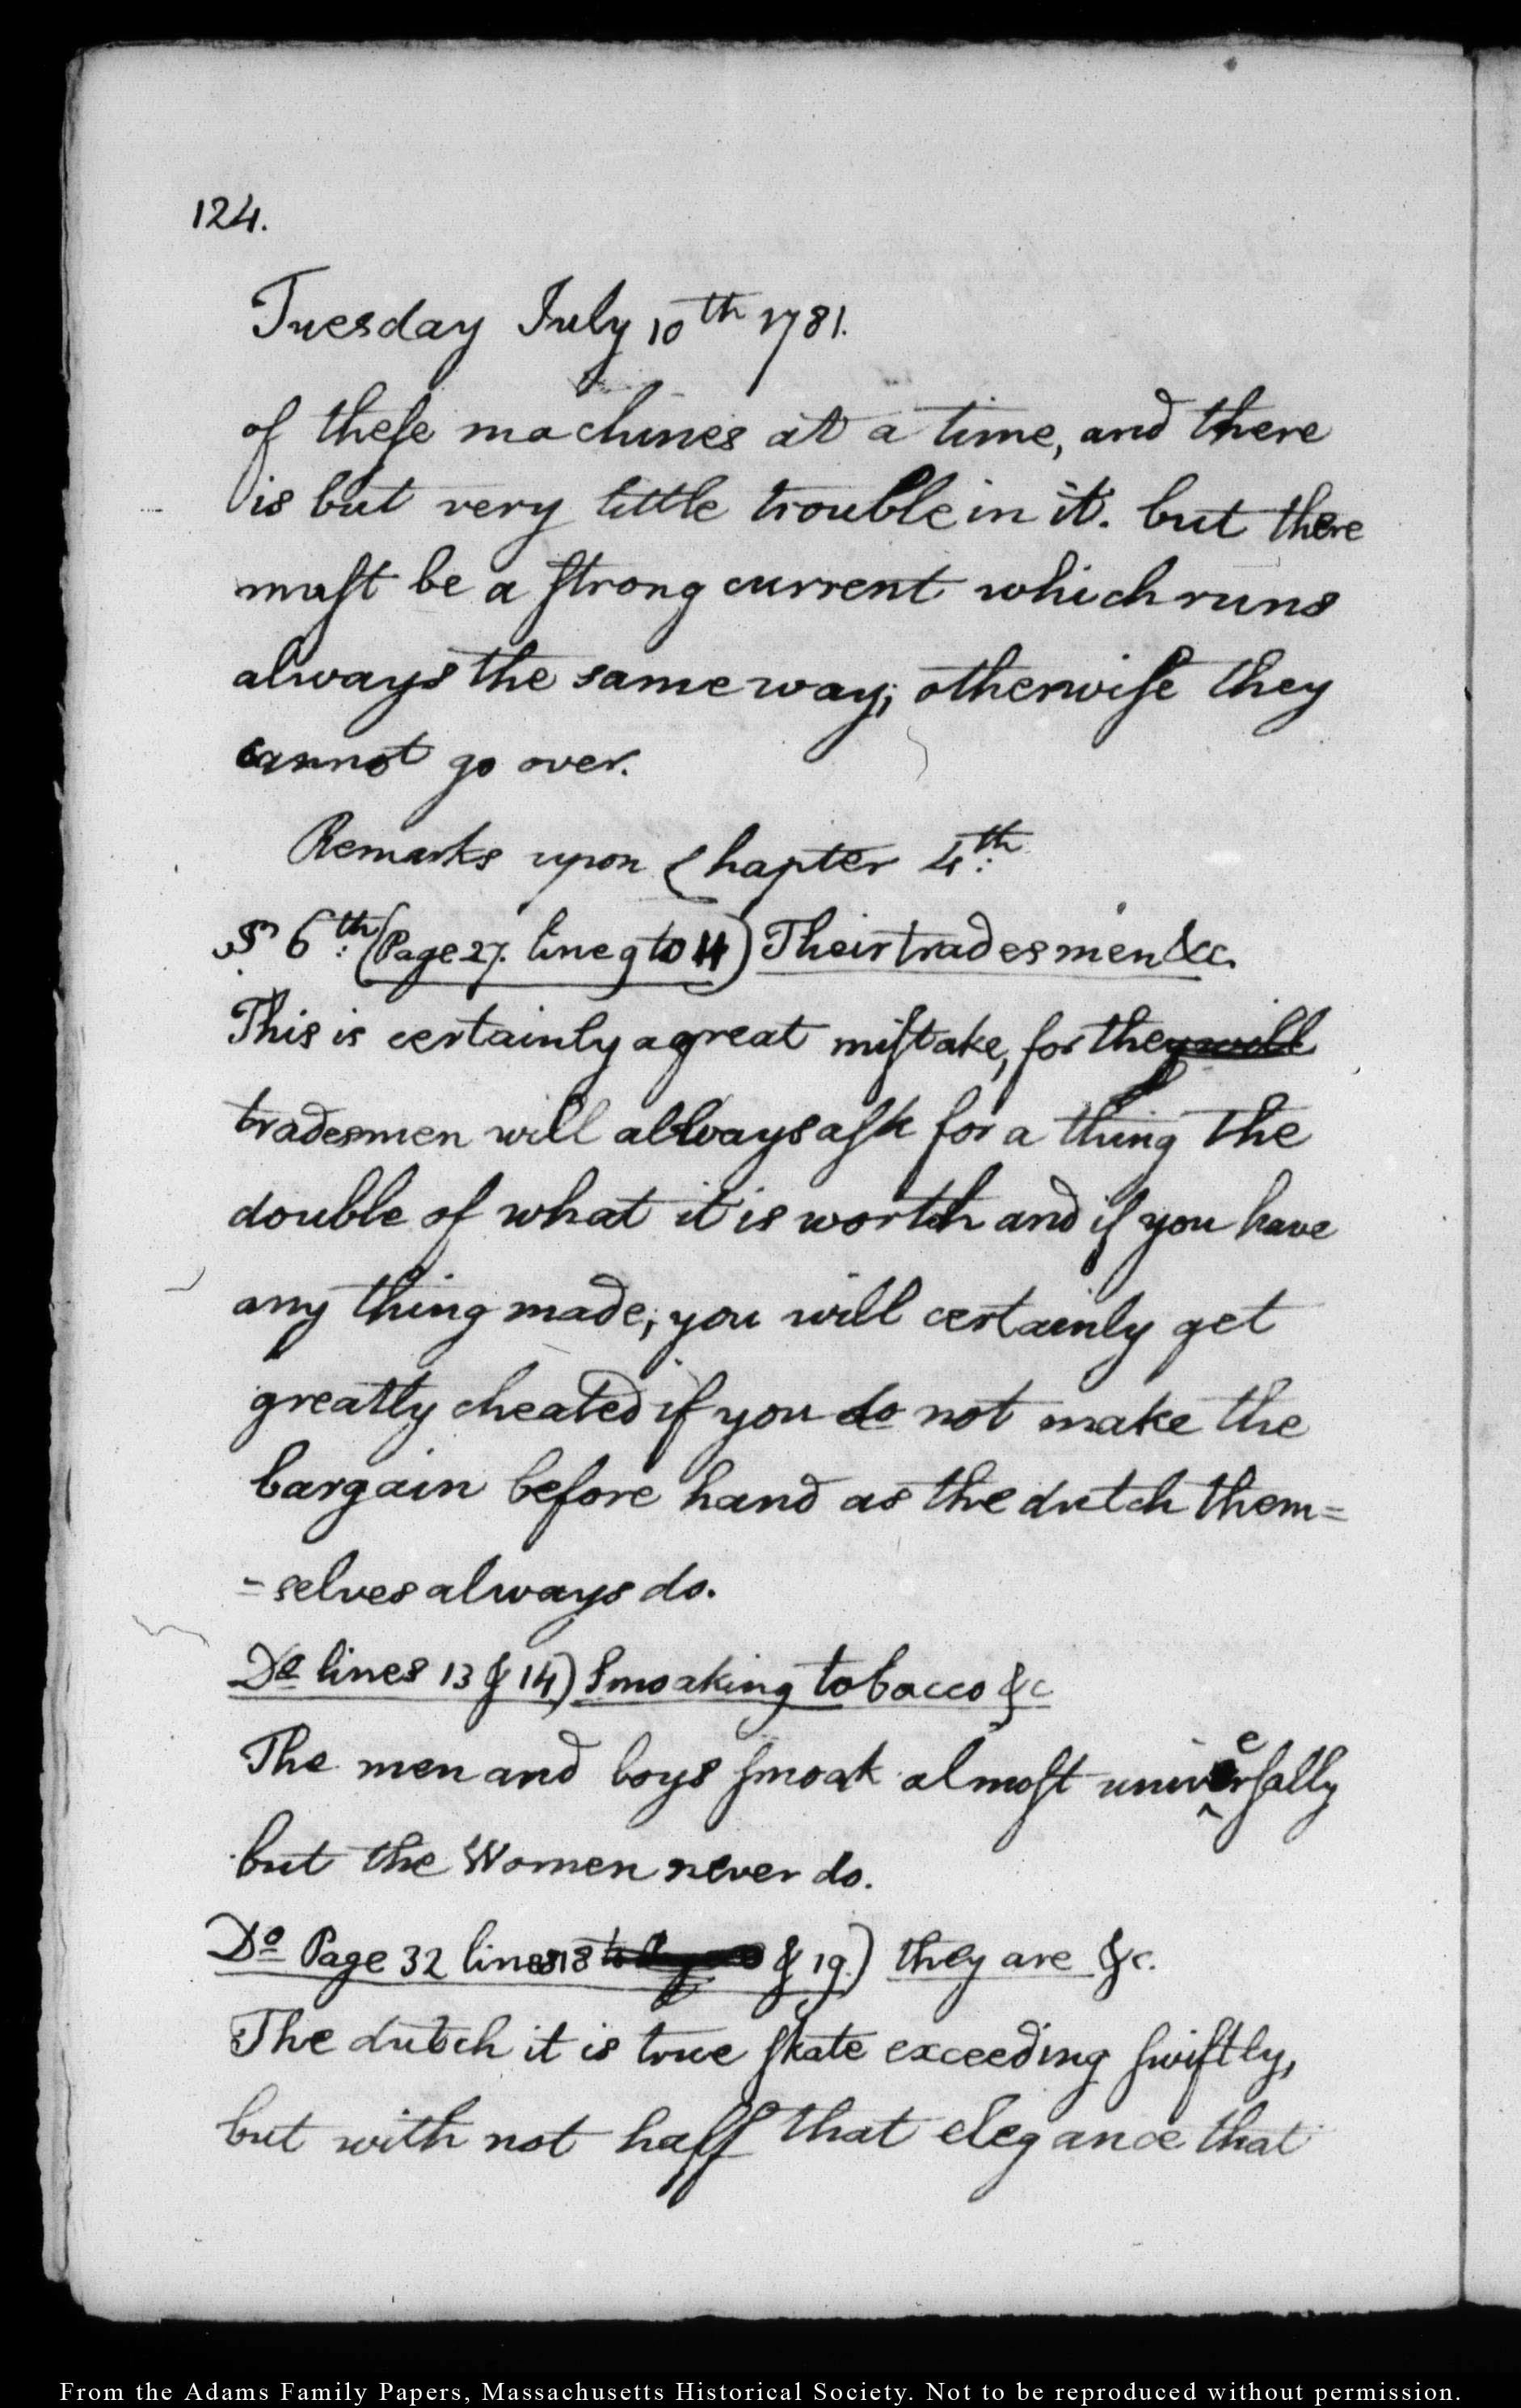 124.
Tuesday July 10th 1781.
of these machines at a time, and there
is but very little trouble in it. but there
must be a strong current which runs
always the same way; otherwise they
cannot go over.
Remarks upon Chapter 4th:
§ 6th: (Page 27. line 9 to 11) Their tradesmen &c.
This is certainly a great mistake, for they will
tradesmen will allways ask for a thing the
double of what it is worth and if you have
any thing made; you will certainly get
greatly cheated if you do not make the
bargain before hand as the dutch them=
=selves always do.
Do lines 13 & 14) Smoaking tobacco &c
The men and boys smoak almost universally
but the Women never do.
Do Page 32 lines 18 & 19.) they are &c.
The dutch it is true skate exceeding swiftly,
but with not half that elegance that
From the Adams Family Papers, Massachusetts Historical Society. Not to be reproduced without permission.